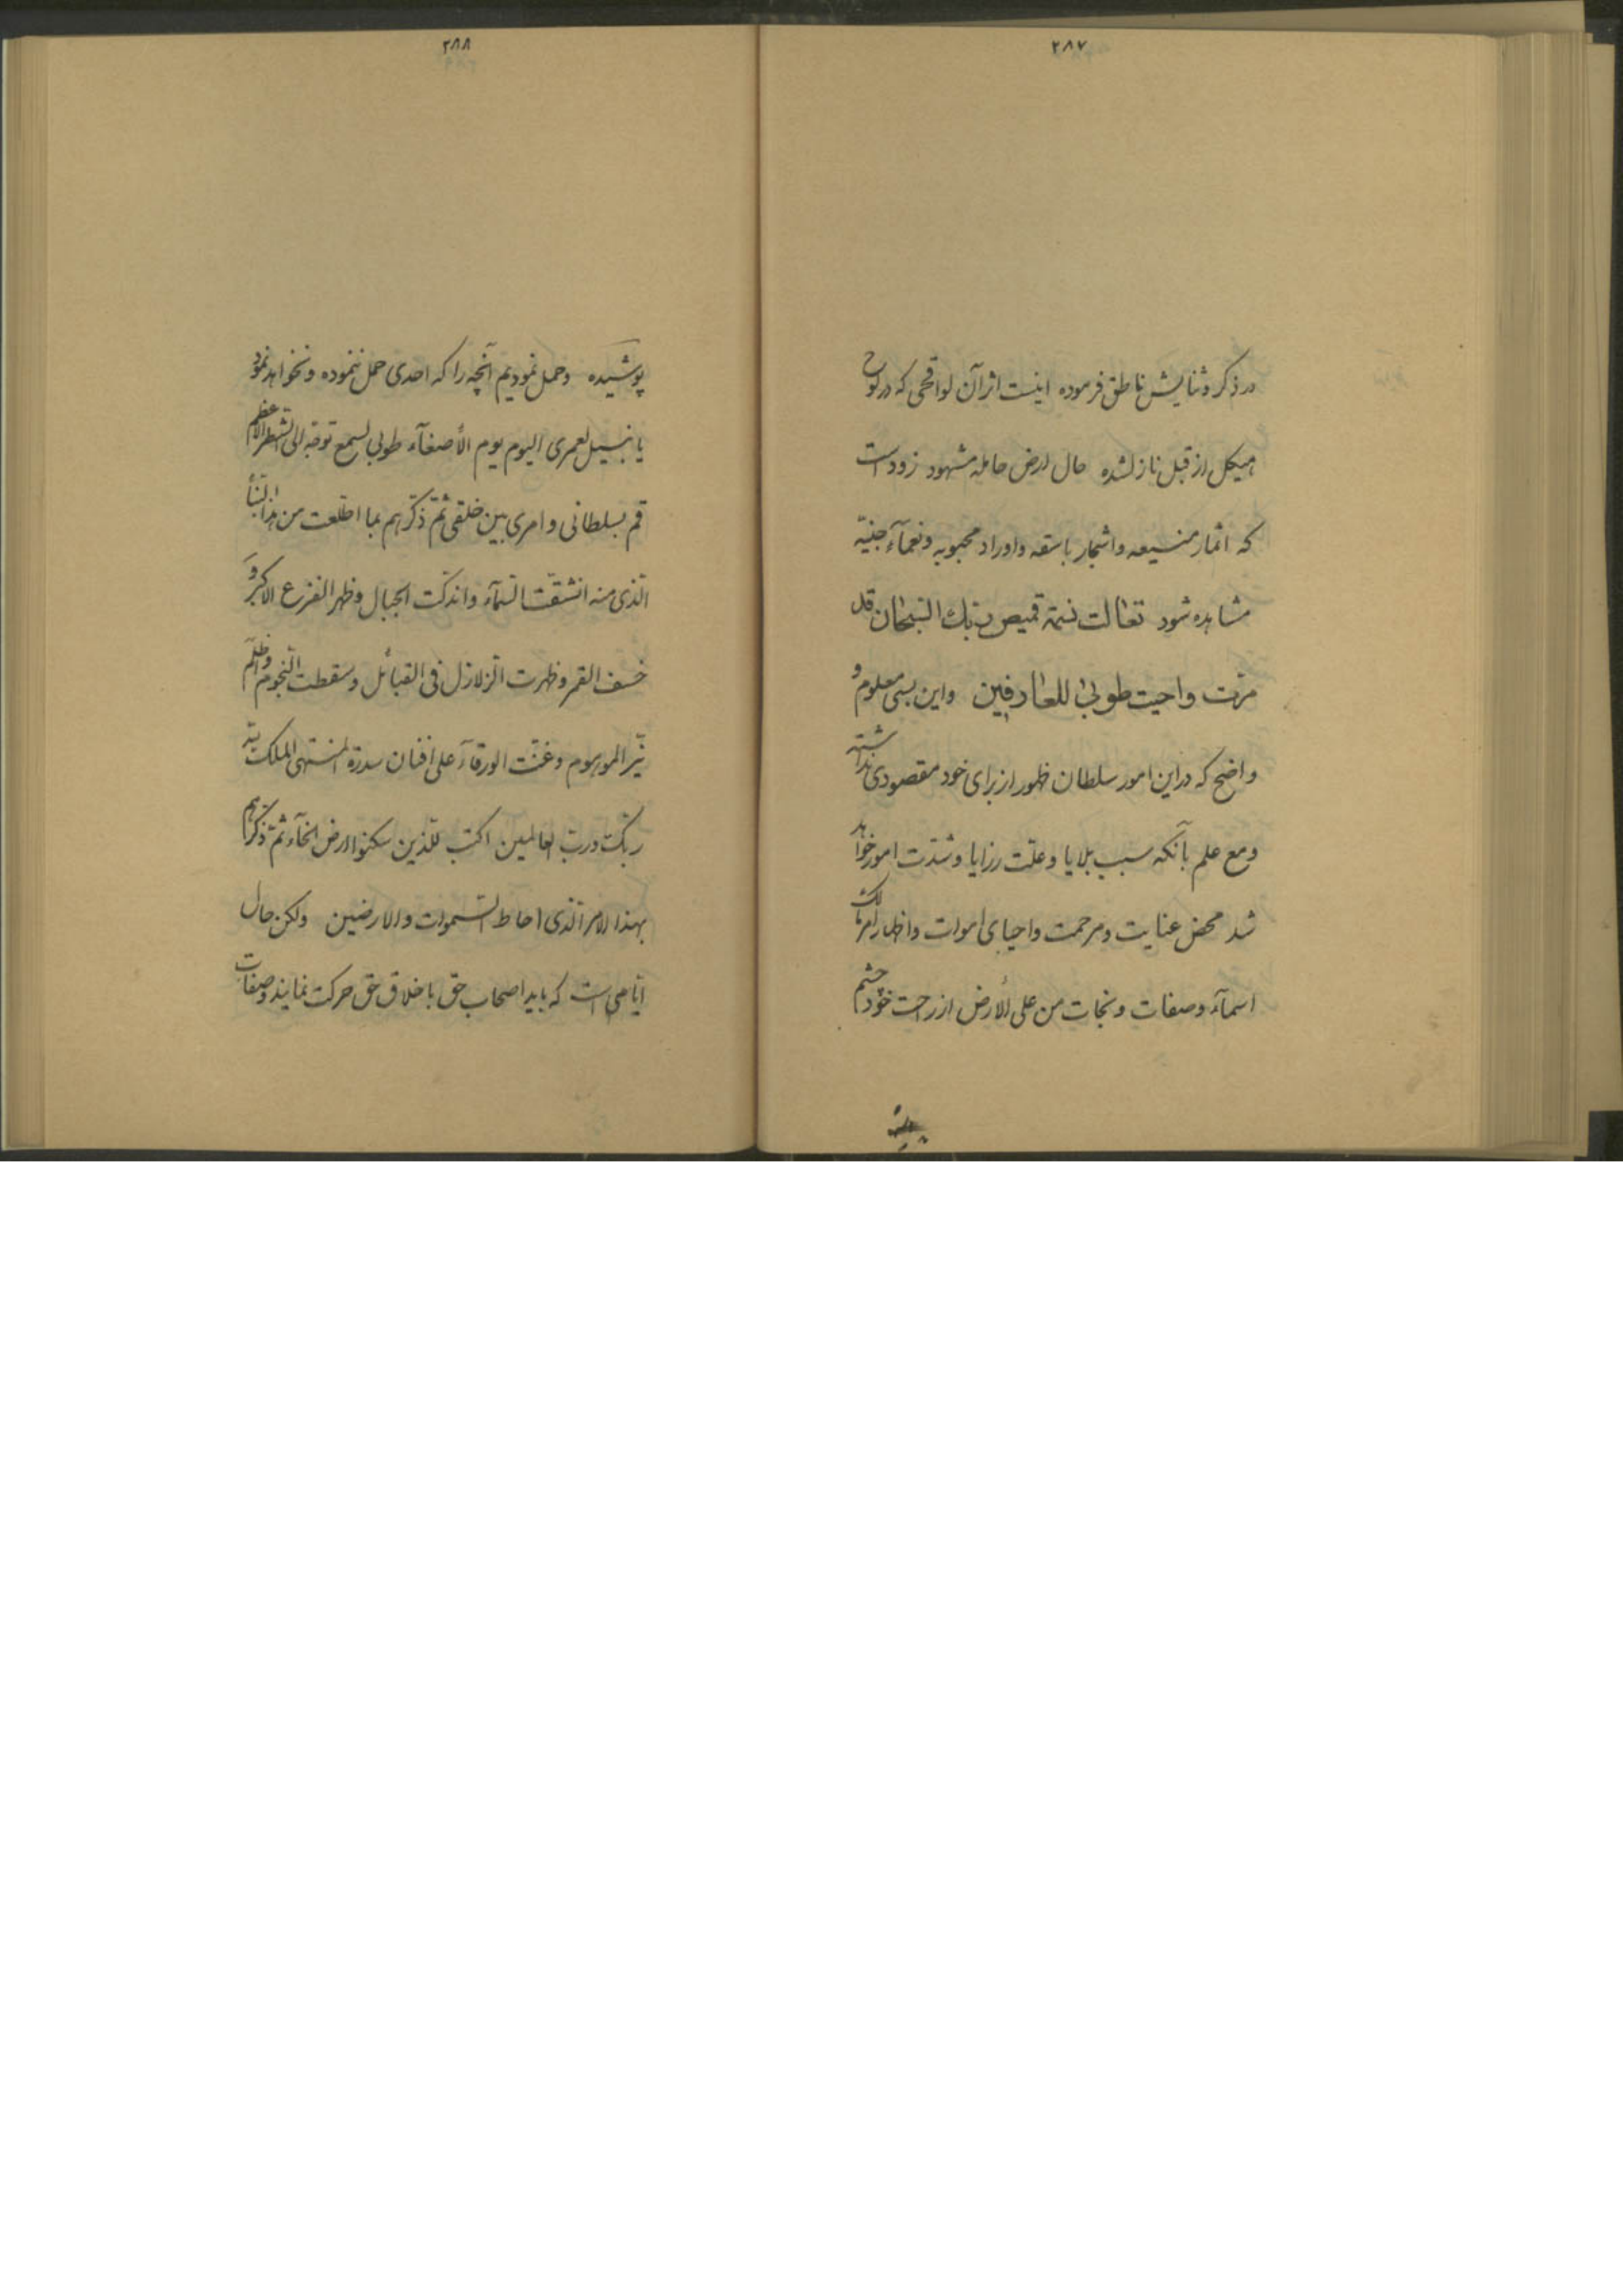 ٢٨٧
در ذکر و ثنایش ناطق فرموده اینست اثر آن لواقحی که در لوح
هیکل از قبل نازلشده حال ارض حامله مشهود زود است
که اثمار منیعه و اشجار باسقه و اوراد محبوبه و نعمآء جنیّه
مشاهده شود تعالت نسمة قمیص ربّك السّبحان قد
مرّت و احیت طوبی للعارفین و این بسی معلوم و
واضح که در این امور سلطان ظهور از برای خود مقصودی نداشته
و مع علم بآنکه سبب بلایا و علّت رزایا و شدّت امور خواهد
شد محض عنایت و مرحمت و احیای اموات و اظهار امر مالک
اسمآء و صفات و نجات من علی الأرض از راحت خود چشم
٢٨٨
پوشیده و حمل نمودیم آنچه را که احدی حمل ننموده و نخواهد نمود
یا نبیل لعمری الیوم یوم الأصغآء طوبی لسمع توجّه الی الشّطر الاعظم
قم بسلطانی و امری بین خلقی ثمّ ذکّرهم بما اطّلعت من هذا النّبأ
الّذی منه انشقّت السّمآء و اندکّت الجبال و ظهر الفزع الاکبر و
خسف القمر و ظهرت الزّلازل فی القبائل و سقطت النّجوم و اظلم
نیّر الموهوم و غنّت الورقآء علی افنان سدرة المنتهی الملک لله
ربّک و ربّ العالمین اکتب للّذین سکنوا ارض الخآء ثمّ ذکّرهم
بهذا الامر الّذی احاط السّموات و الارضین ولکن حال
ایّامی است که باید اصحاب حق باخلاق حق حرکت نمایند و صفات